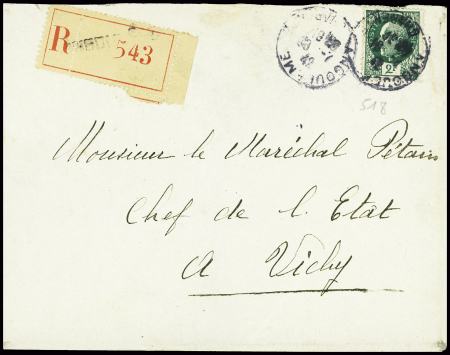 R 543
ANGOULEME
2F
518
Monsieur le Maréchal Pétain
Chef de l. Etat
A Vichy